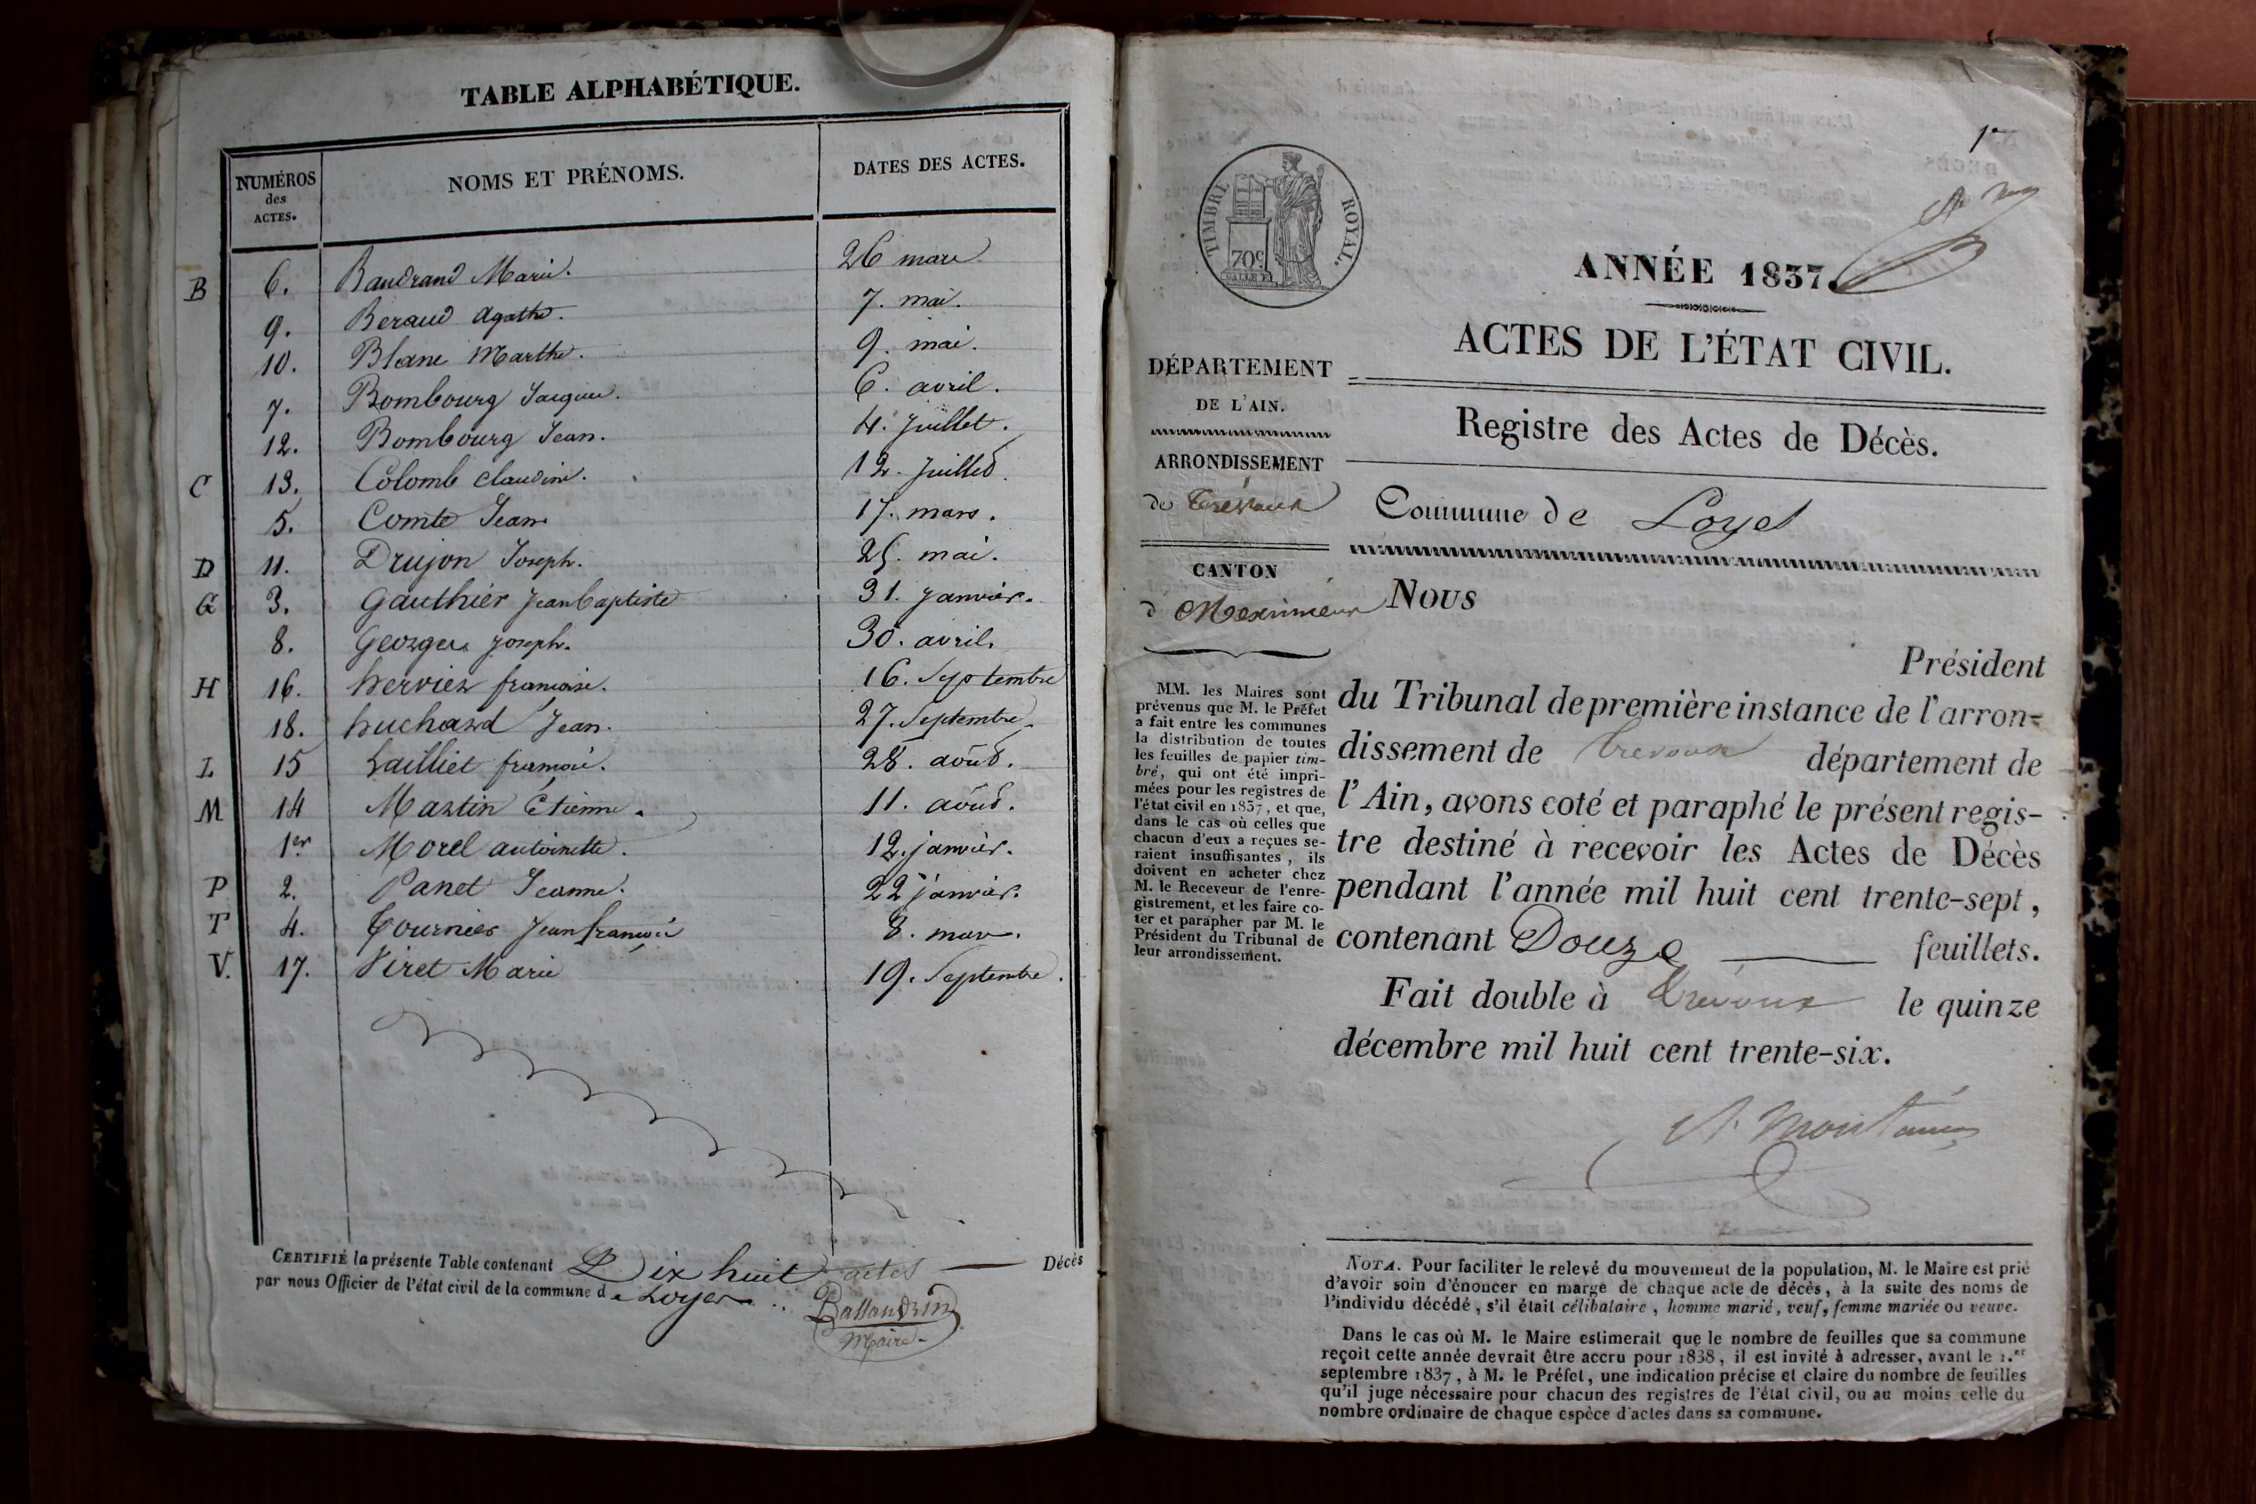 TABLE ALPHABÉTIQUE.
NUMÉROS des ACTES. NOMS ET PRÉNOMS. DATES DES ACTES.
B 6. Baudrand Marie. 26 mars
9. Beraud agathe. 7. mai.
10. Blanc Marthe. 9. mai.
7. Bombourg Jacques. 6. avril.
12. Bombourg Jean. 4. Juillet.
C 13. Colomb claudine. 12. Juillet.
5. Comte Jean 17. mars.
D 11. Drujon Joseph. 25. mai.
G 3. Gauthier Jean baptiste 31. Janvier.
8. Georges Joseph. 30. avril.
H 16. hervier françoise. 16. Septembre
18. huchard Jean. 27. Septembre.
L 15 Lailliet françois. 28. août.
M 14 Martin Etienne. 11. août.
1er Morel antoinette. 12. janvier.
P 2. Panet Jeanne. 22 janvier.
T 4. Tournier Jean françois 8. mars.
V. 17. Viret Marie 19. Septembre.
CERTIFIÉ la présente Table contenant Dix huit actes Décès
par nous Officier de l'état civil de la commune de Loyes
Ballandrin
Maire
1er
TIMBRE ROYAL.
70c
ANNÉE 1837.
ACTES DE L'ÉTAT CIVIL.
Registre des Actes de Décès.
Commune de Loyes
DÉPARTEMENT
DE L'AIN.
ARRONDISSEMENT
de Trévoux
CANTON
d Meximieux
MM. les Maires sont
prévenus que M. le Préfet
a fait entre les communes
la distribution de toutes
les feuilles de papier tim-
bré, qui ont été impri-
mées pour les registres de
l'état civil en 1837, et que,
dans le cas où celles que
chacun d'eux a reçues se-
raient insuffisantes, ils
doivent en acheter chez
M. le Receveur de l'enre-
gistrement, et les faire co-
ter et parapher par M. le
Président du Tribunal de
leur arrondissement.
Nous
Président
du Tribunal de première instance de l'arron-
dissement de Trevoux département de
l'Ain, avons coté et paraphé le présent regis-
tre destiné à recevoir les Actes de Décès
pendant l'année mil huit cent trente-sept,
contenant Douze feuillets.
Fait double à Trévoux le quinze
décembre mil huit cent trente-six.
NOTA. Pour faciliter le relevé du mouvement de la population, M. le Maire est prié
d'avoir soin d'énoncer en marge de chaque acte de décès, à la suite des noms de
l'individu décédé, s'il était célibataire, homme marié, veuf, femme mariée ou veuve.
Dans le cas où M. le Maire estimerait que le nombre de feuilles que sa commune
reçoit cette année devrait être accru pour 1838, il est invité à adresser, avant le 1.er
septembre 1837, à M. le Préfet, une indication précise et claire du nombre de feuilles
qu'il juge nécessaire pour chacun des registres de l'état civil, ou au moins celle du
nombre ordinaire de chaque espèce d'actes dans sa commune.